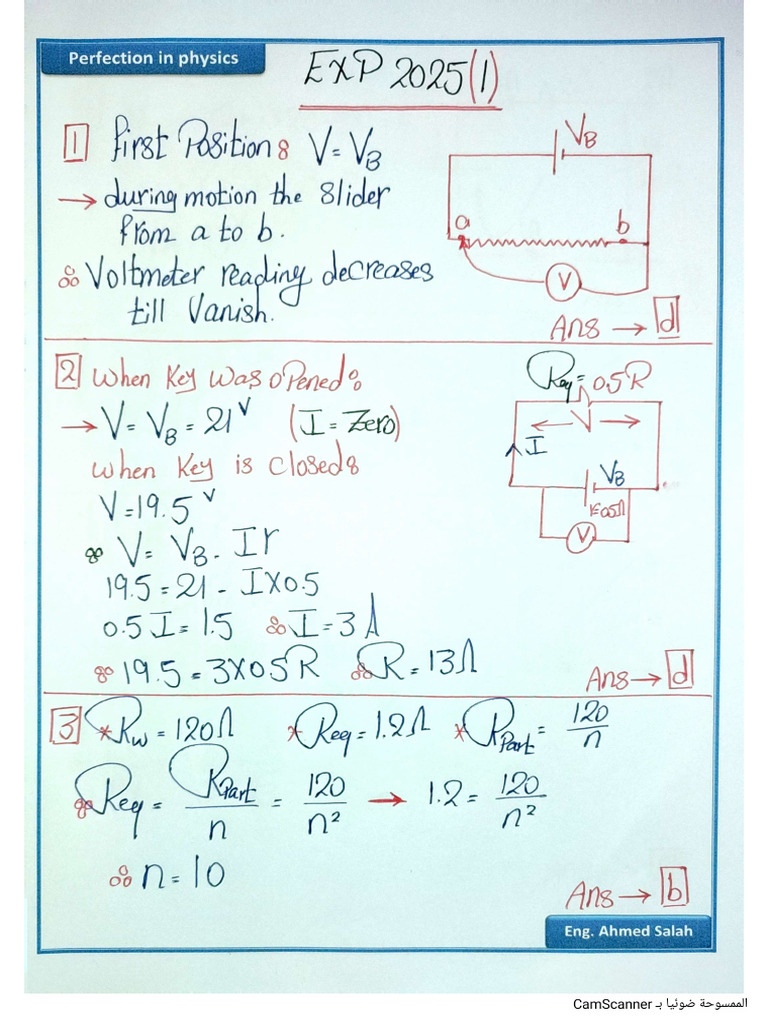 Perfection in physics
EXP 2025(1)
1 First Position: V = VB
→ during motion the slider
from a to b.
∴ Voltmeter reading decreases
till Vanish.
VB
a
b
V
Ans → d
2 When Key was opened:
→ V = VB = 21 V (I = Zero)
When Key is closed:
V = 19.5 V
∴ V = VB - Ir
19.5 = 21 - I×0.5
0.5 I = 1.5 ∴ I = 3 A
∴ 19.5 = 3×0.5R ∴ R = 13Ω
Req = 0.5R
V
I
VB
r=0.5Ω
V
Ans → d
3 * Rw = 120Ω * Req = 1.2Ω * RPart = 120/n
∴ Req = RPart/n = 120/n² → 1.2 = 120/n²
∴ n = 10
Ans → b
Eng. Ahmed Salah
الممسوحة ضوئيا بـ CamScanner